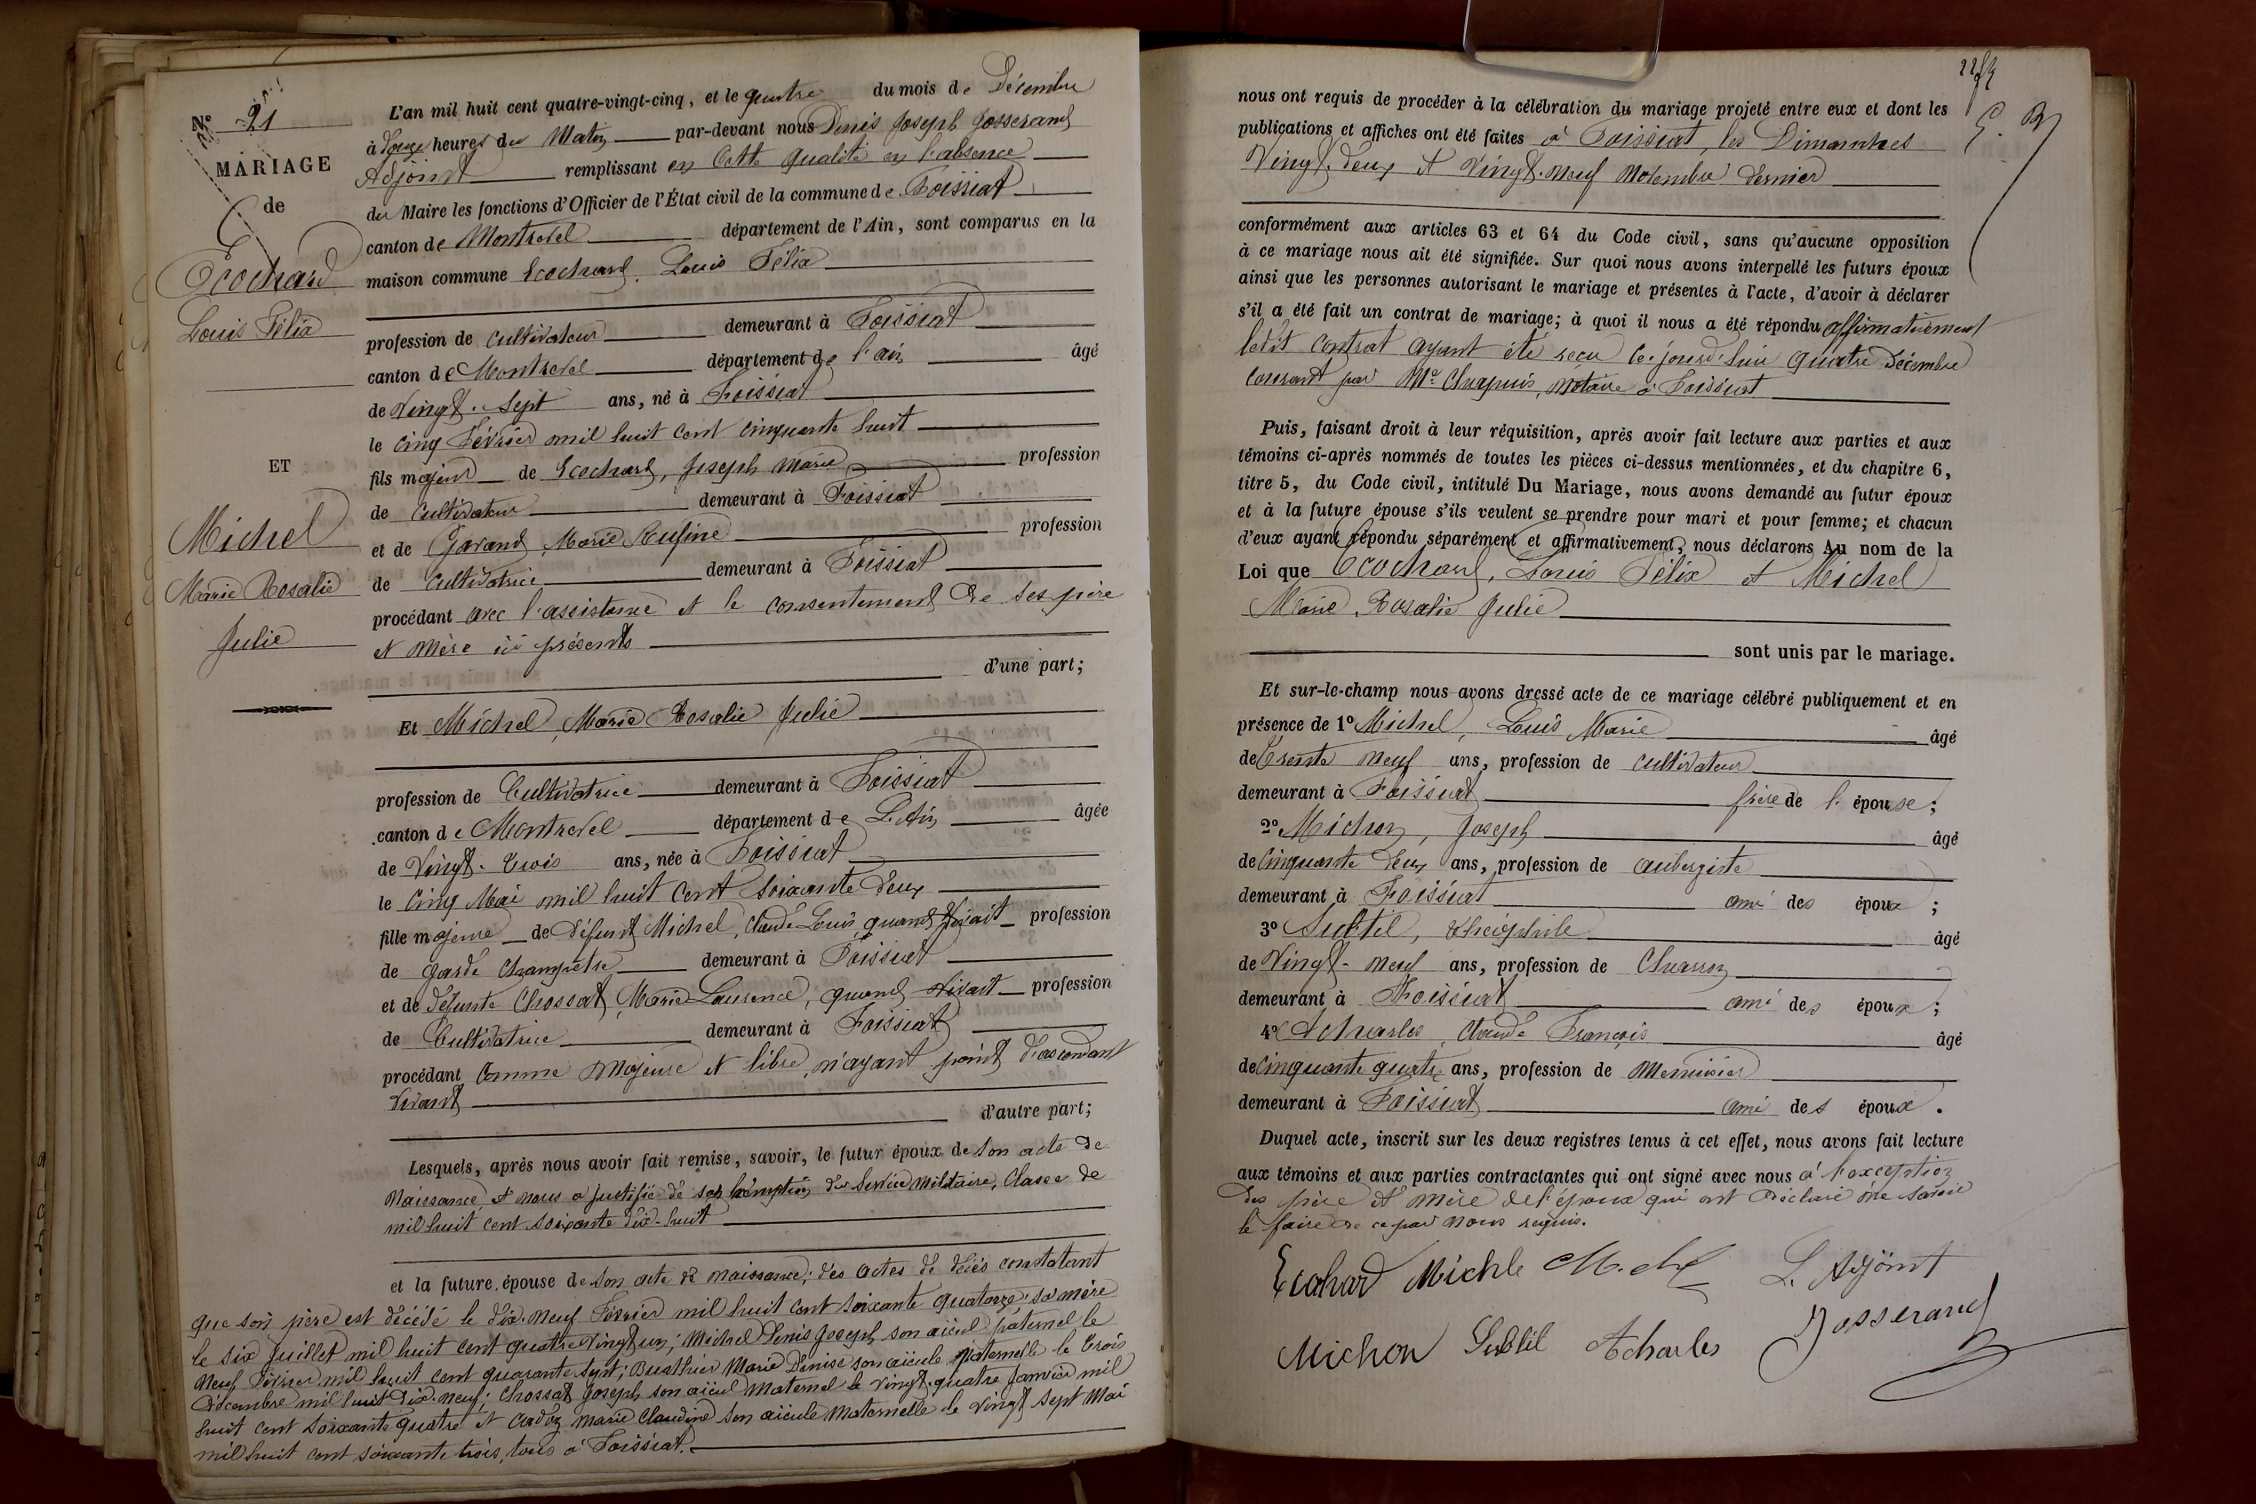 N° 21
MARIAGE
de
Ecochard
Louis Félix
ET
Michel
Marie Rosalie
Julie
L'an mil huit cent quatre-vingt-cinq, et le quatre du mois de Décembre
à onze heures du Matin par-devant nous Denis Joseph Josserand
Adjoint remplissant en cette qualité en l'absence
du Maire les fonctions d'Officier de l'État civil de la commune de Foissiat
canton de Montrevel département de l'Ain, sont comparus en la
maison commune Ecochard, Louis Félix
profession de cultivateur demeurant à Foissiat
canton de Montrevel département de l'ain âgé
de Vingt-Sept ans, né à Foissiat
le cinq Février mil huit cent cinquante huit
fils majeur de Ecochard, Joseph Marie profession
de Cultivateur demeurant à Foissiat
et de Garand, Marie Rufine profession
de Cultivatrice demeurant à Foissiat
procédant avec l'assistance et le consentement de ses père
et mère ici présents
d'une part;
Et Michel, Marie Rosalie Julie
profession de Cultivatrice demeurant à Foissiat
canton de Montrevel département de L'Ain âgée
de Vingt-trois ans, née à Foissiat
le Cinq Mai mil huit cent soixante deux
fille majeure de défunt Michel, Claude Louis, quand vivait profession
de garde Champêtre demeurant à Foissiat
et de défunte Chossat, Marie Laurence, quand vivait profession
de Cultivatrice demeurant à Foissiat
procédant comme majeure et libre, n'ayant point d'ascendant
vivant
d'autre part;
Lesquels, après nous avoir fait remise, savoir, le futur époux de son acte de
Naissance, et nous a justifié de son exemption du Service militaire, Classe de
mil huit cent soixante dix-huit
et la future épouse de son acte de naissance; des actes de décès constatant
que son père est décédé le dix-neuf Février mil huit cent soixante quatorze; sa mère
le six Juillet mil huit cent quatre vingt un; Michel Denis Joseph son aïeul paternel le
neuf Février mil huit cent quarante sept; Buathier Marie Denise son aïeule paternelle le trois
décembre mil huit dix-neuf; Chossat Joseph son aïeul maternel le vingt-quatre Janvier mil
huit cent soixante quatre et Marie Claudine son aïeule maternelle le vingt sept Mai
mil huit cent soixante trois, tous à Foissiat.
nous ont requis de procéder à la célébration du mariage projeté entre eux et dont les
publications et affiches ont été faites à Foissiat, les Dimanches
Vingt-deux et Vingt-neuf Novembre dernier
conformément aux articles 63 et 64 du Code civil, sans qu'aucune opposition
à ce mariage nous ait été signifiée. Sur quoi nous avons interpellé les futurs époux
ainsi que les personnes autorisant le mariage et présentes à l'acte, d'avoir à déclarer
s'il a été fait un contrat de mariage; à quoi il nous a été répondu affirmativement
ledit contrat ayant été reçu ce jourd'hui quatre Décembre
courant par Me Chapuis, notaire à Foissiat
Puis, faisant droit à leur réquisition, après avoir fait lecture aux parties et aux
témoins ci-après nommés de toutes les pièces ci-dessus mentionnées, et du chapitre 6,
titre 5, du Code civil, intitulé Du Mariage, nous avons demandé au futur époux
et à la future épouse s'ils veulent se prendre pour mari et pour femme; et chacun
d'eux ayant répondu séparément et affirmativement, nous déclarons Au nom de la
Loi que Ecochard, Louis Félix et Michel
Marie Rosalie Julie
sont unis par le mariage.
Et sur-le-champ nous avons dressé acte de ce mariage célébré publiquement et en
présence de 1° Michel, Louis Marie âgé
de Trente neuf ans, profession de cultivateur
demeurant à Foissiat frère de l'épouse;
2° Michon, Joseph âgé
de Cinquante deux ans, profession de aubergiste
demeurant à Foissiat ami des époux;
3° Subtil, Théophile âgé
de Vingt-neuf ans, profession de Charron
demeurant à Foissiat ami des époux;
4° Acharles, Claude François âgé
de cinquante quatre ans, profession de Menuisier
demeurant à Foissiat ami des époux.
Duquel acte, inscrit sur les deux registres tenus à cet effet, nous avons fait lecture
aux témoins et aux parties contractantes qui ont signé avec nous à l'exception
des père et mère de l'époux qui ont déclaré ne savoir
le faire de ce par nous requis.
Ecohard Michle L. Adjoint
Michon Subtil Acharles Josserand